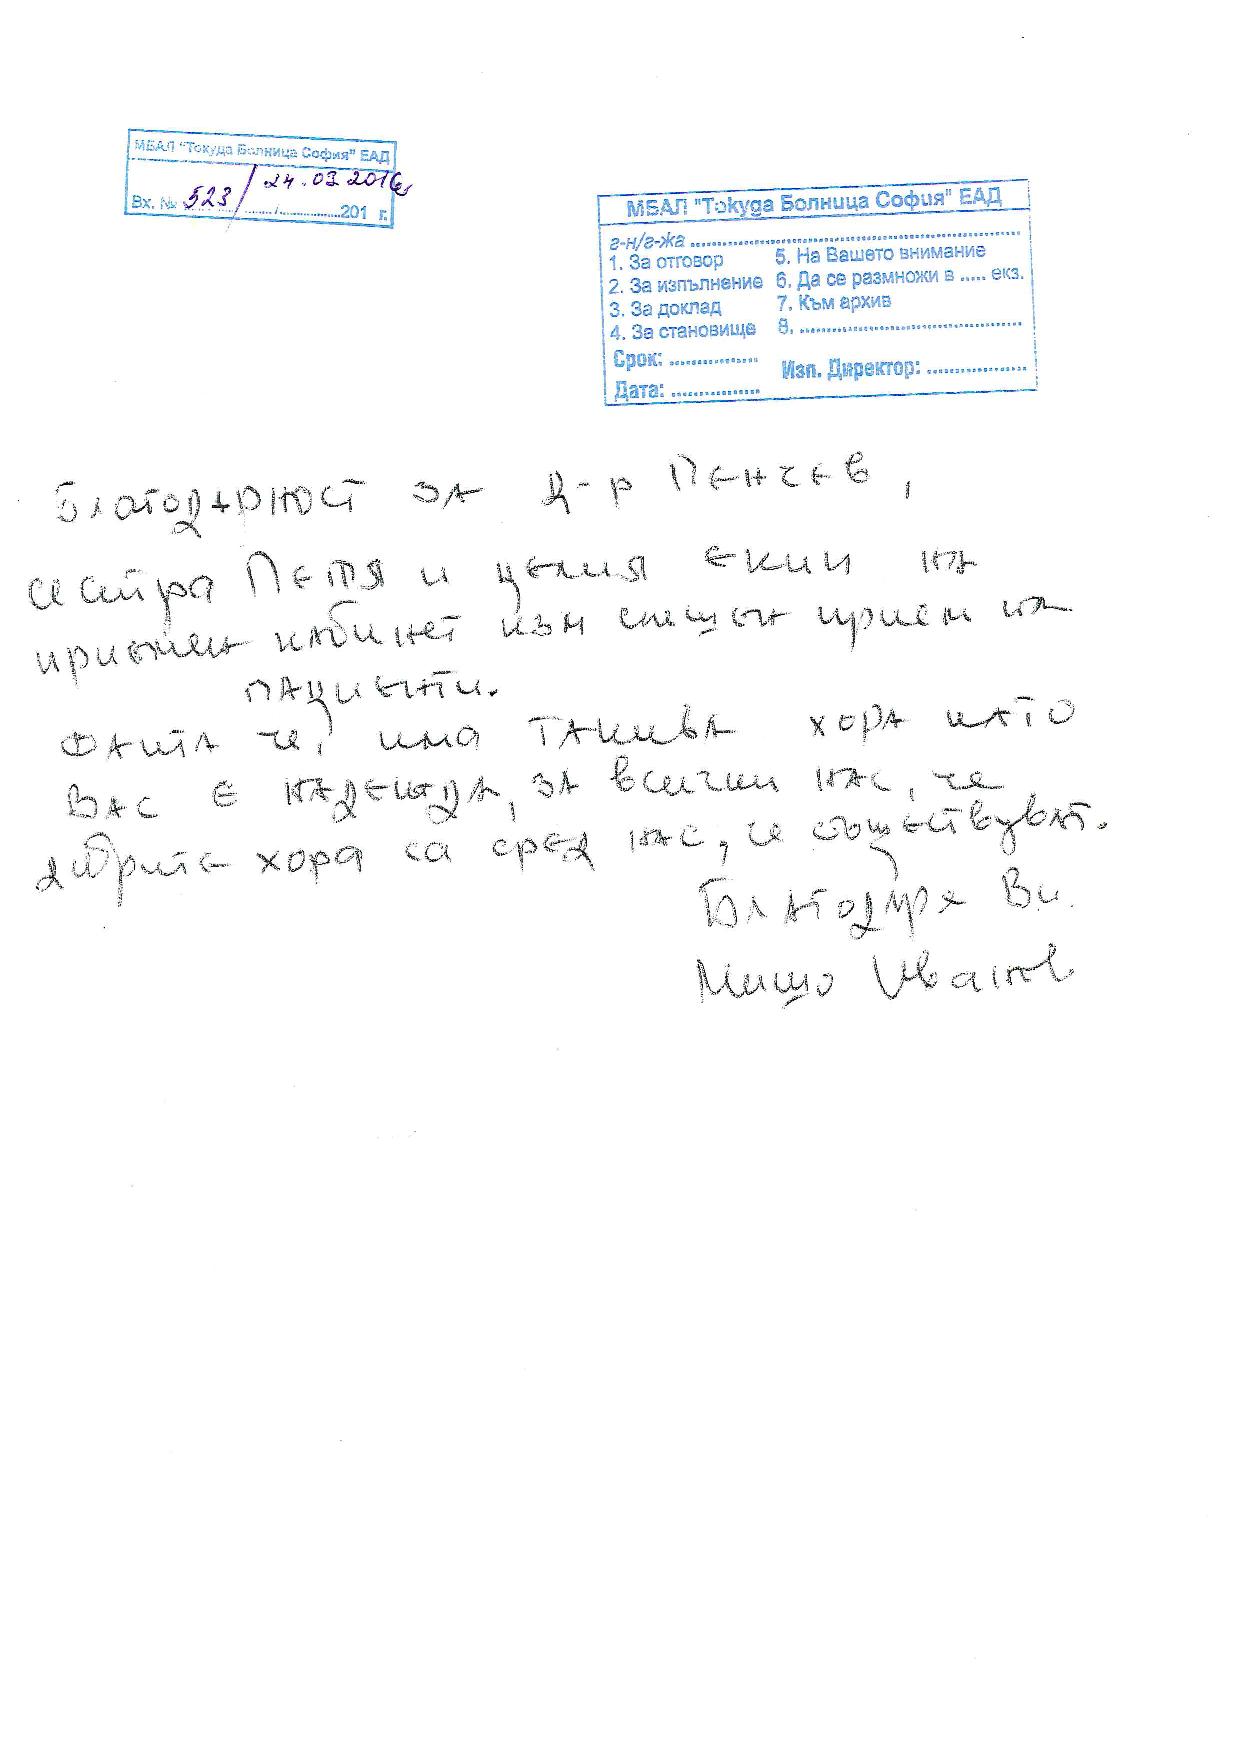 МБАЛ "Токуда Болница София" ЕАД
Вх. № 523 / 24.03.2016
......./................201 г.
МБАЛ "Токуда Болница София" ЕАД
г-н/г-жа ..........................................
1. За отговор 5. На Вашето внимание
2. За изпълнение 6. Да се размножи в ..... екз.
3. За доклад 7. Към архив
4. За становище 8. ..............................
Срок: ............... Изп. Директор: .................
Дата: ...............
Благодарност за д-р Пенчев,
сестра Петя и целия екип на
приемен кабинет към спешен прием на
пациенти.
Факта че, има такива хора като
Вас е надежда, за всички нас, че
добрите хора са сред нас, че съществуват.
Благодаря Ви.
Мишо Иванов